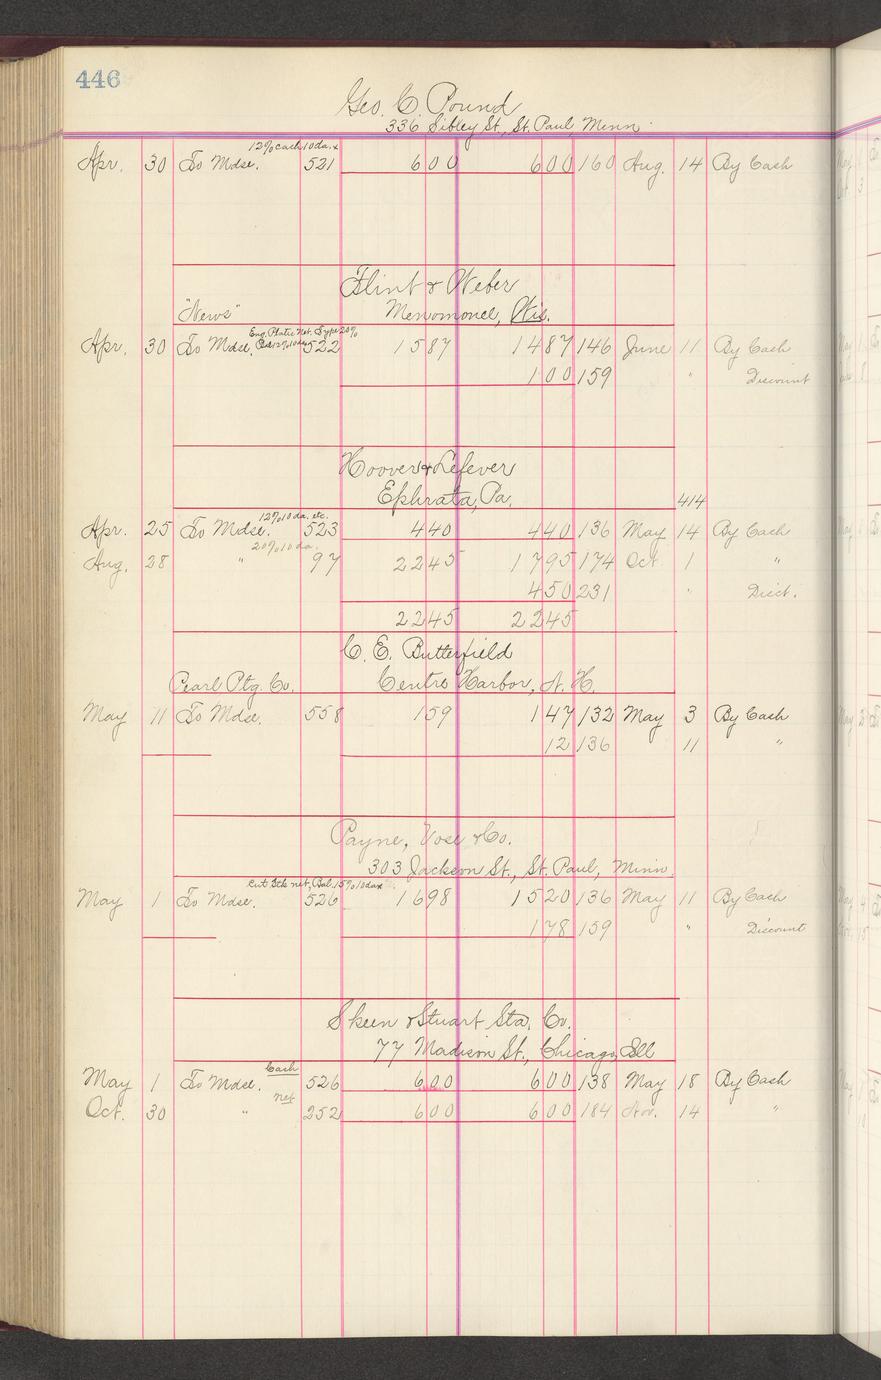 446
Geo. C. Pound
336 Sibley St., St. Paul, Minn.
12% cash 10 da.
Apr. 30 To Mdse. 521 600 600 160 Aug. 14 By Cash
Flint & Weber
"News" Menomonee, Wis.
Eng. Plates Net. Type 20%
Apr. 30 To Mdse. Bal 12% 10 da 522 1587 1487 146 June 11 By Cash
100 159 " Discount
Hoover & Lefever
Ephrata, Pa. 414
12% 10 da. etc.
Apr. 25 To Mdse. 523 440 440 136 May 14 By Cash
20% 10 da.
Aug. 28 " 97 2245 1795 174 Oct. 1 "
450 231 " Disct.
2245 2245
C. E. Butterfield
Pearl Ptg. Co. Centre Harbor, N. H.
May 11 To Mdse. 558 159 147 132 May 3 By Cash
12 136 11 "
Payne, Vose & Co.
303 Jackson St., St. Paul, Minn.
net, Bal. 15% 10 da
May 1 To Mdse. 526 1698 1520 136 May 11 By Cash
178 159 " Discount
Skeen & Stuart Sta. Co.
77 Madison St., Chicago, Ill
Cash
May 1 To Mdse. 526 600 600 138 May 18 By Cash
net
Oct. 30 " 252 600 600 184 Nov. 14 "